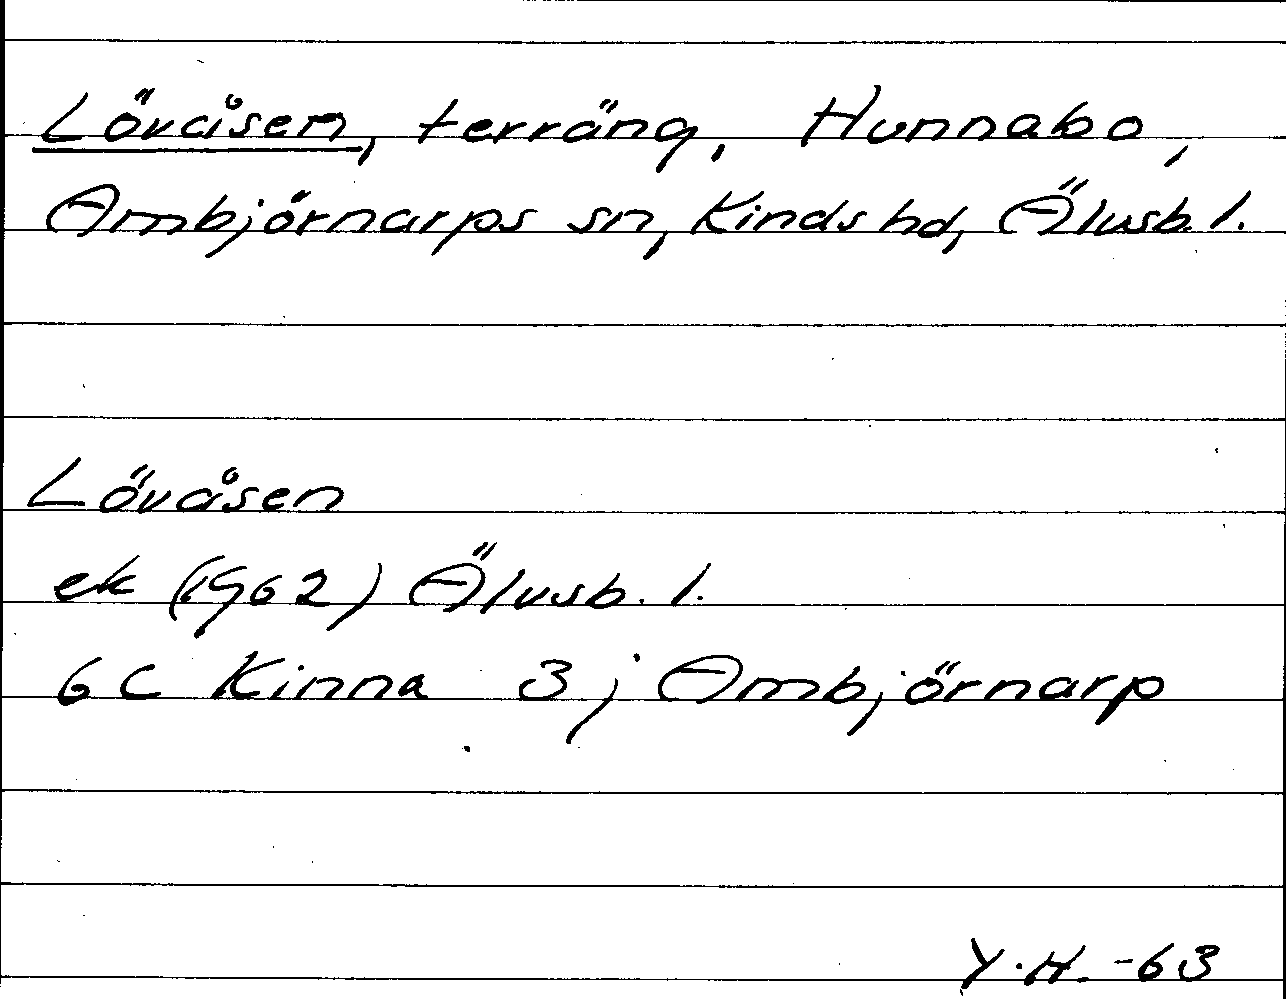 Lövåsen, terräng, Hunnabo,
Ambjörnarps sn, Kinds hd, Älvsb. l.
Lövåsen
ek (1962) Älvsb. l.
6C Kinna 3j Ambjörnarp
Y.H. -63